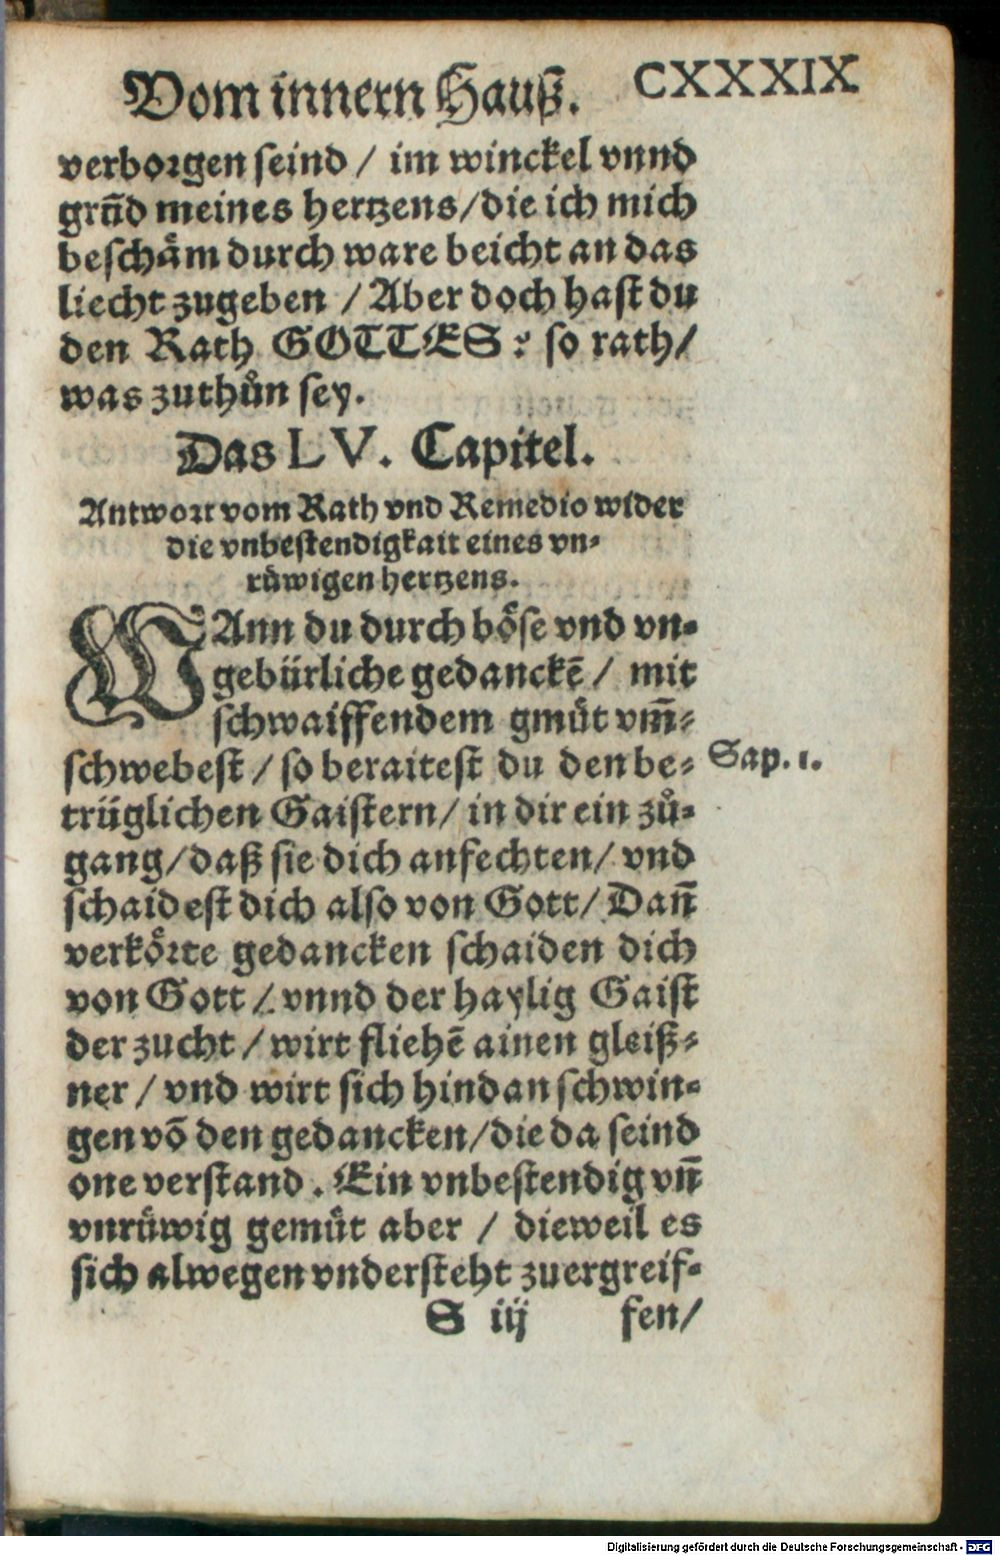 Vom innern Hauß. CXXXIX
verborgen seind / im winckel vnnd
grũd meines hertzens/die ich mich
beschåm durch ware beicht an das
liecht zugeben / Aber doch hast du
den Rath GOTTES: so rath/
was zuthůn sey.
Das LV. Capitel.
Antwort vom Rath vnd Remedio wider
die vnbestendigkait eines vn⸗
růwigen hertzens.
WAnn du durch bôse vnd vn⸗
gebürliche gedanckẽ / mit
schwaiffendem gmůt vm̃⸗
schwebest / so beraitest du den be⸗ Sap. 1.
trüglichen Gaistern/ in dir ein zů⸗
gang/daß sie dich anfechten/ vnd
schaidest dich also von Gott/ Dañ
verkôrte gedancken schaiden dich
von Gott / vnnd der haylig Gaist
der zucht / wirt fliehẽ ainen gleiß⸗
ner / vnd wirt sich hindan schwin⸗
gen võ den gedancken/die da seind
one verstand. Ein vnbestendig vñ
vnrůwig gemůt aber / dieweil es
sich alwegen vndersteht zuergreif⸗
S iij fen/
Digitalisierung gefördert durch die Deutsche Forschungsgemeinschaft - DFG